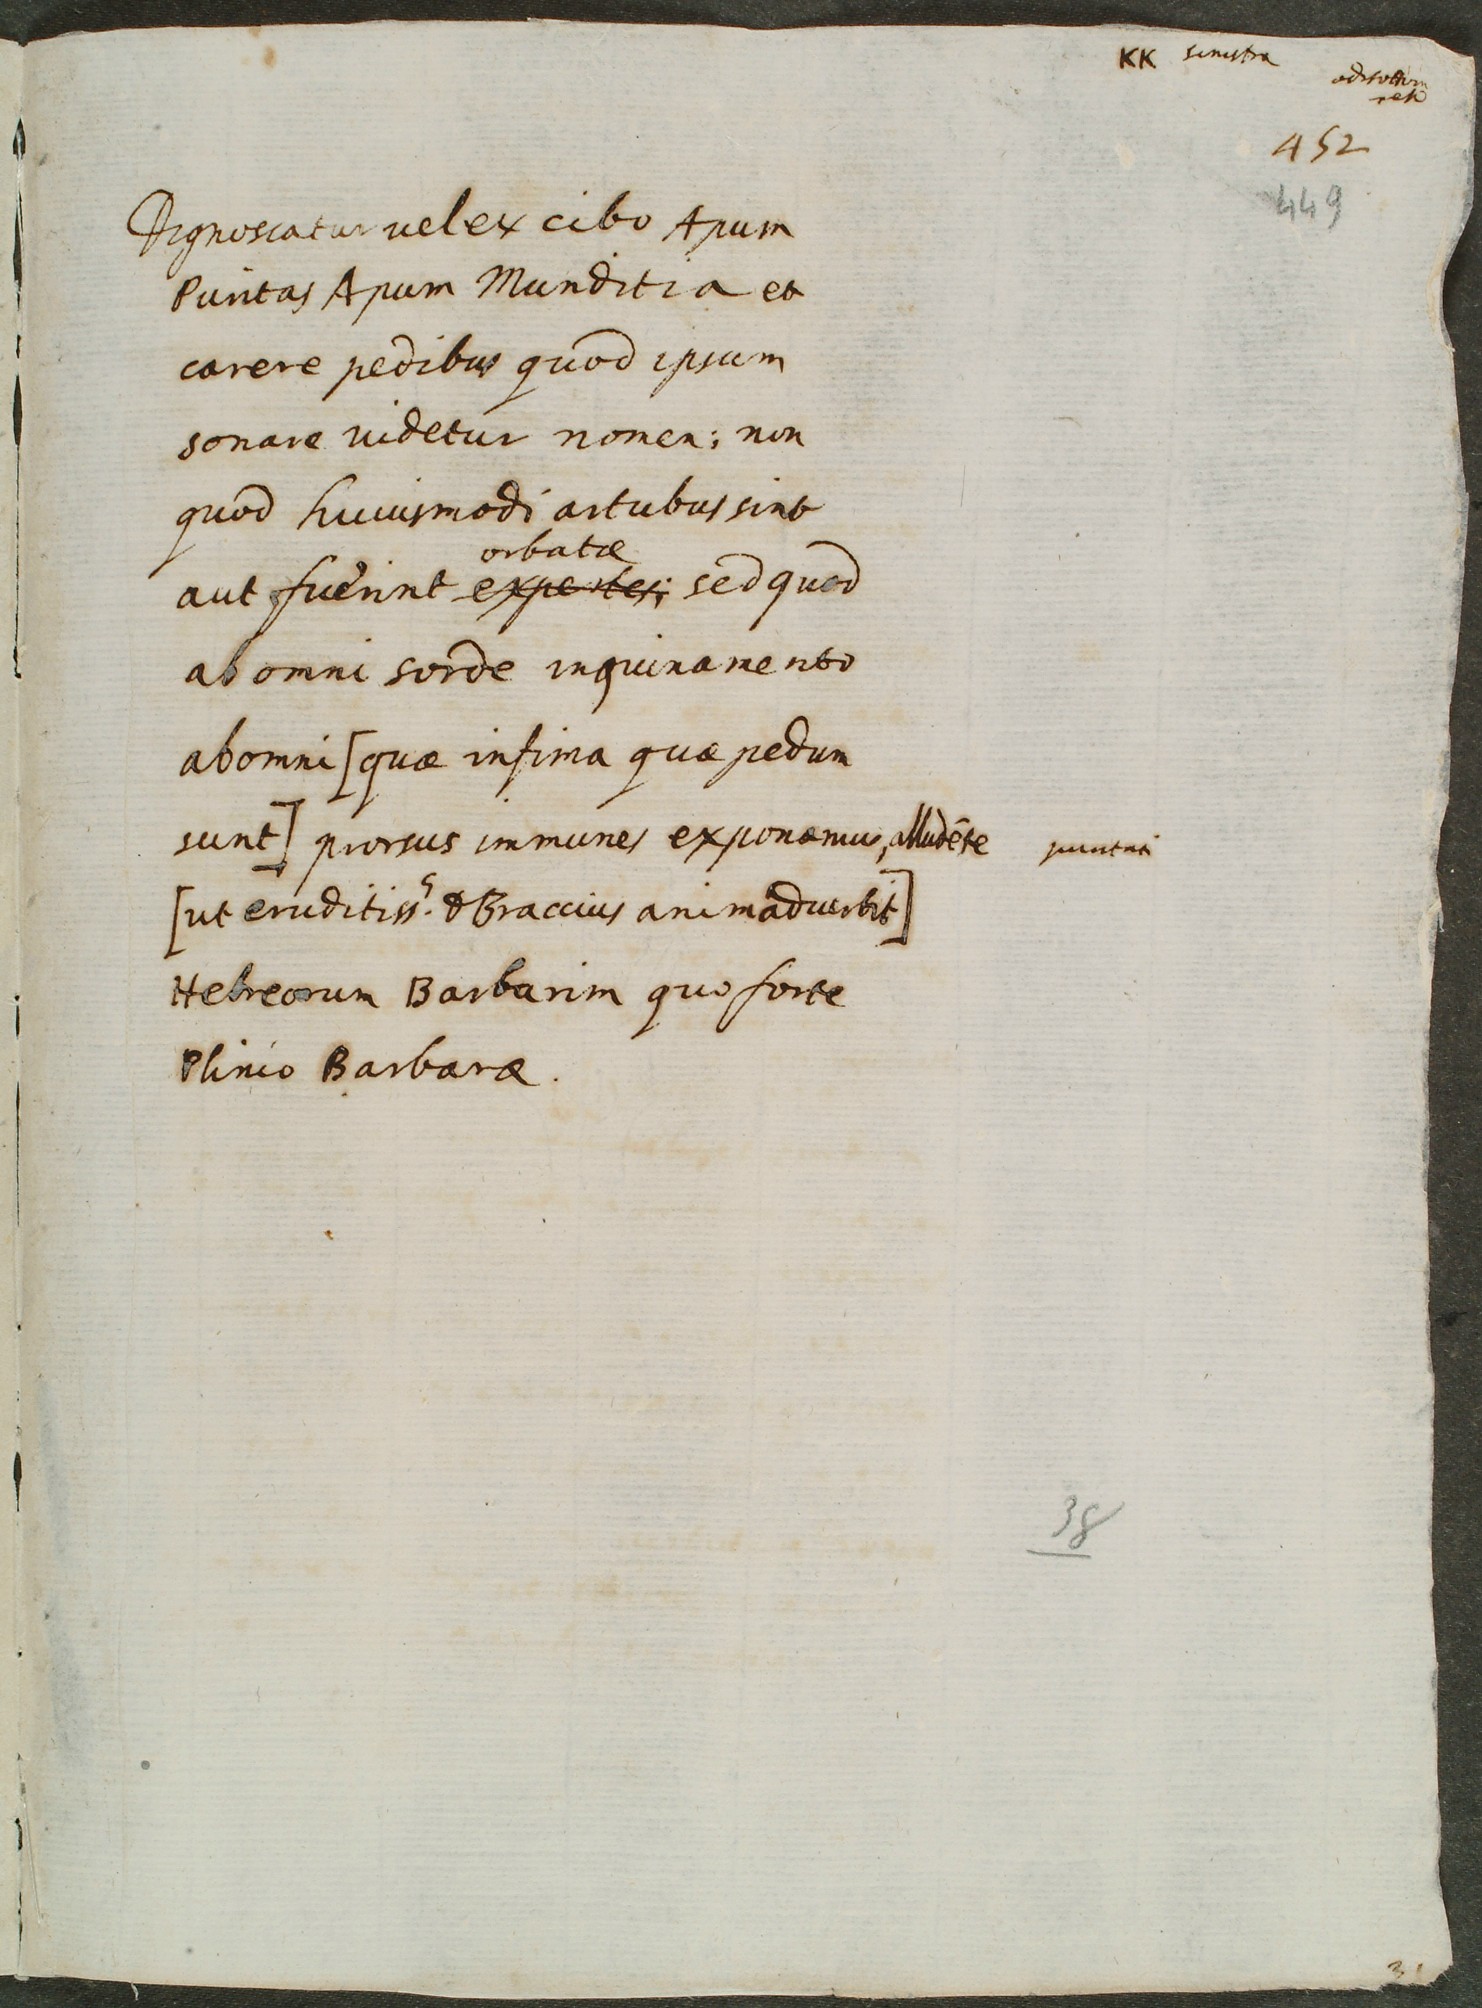 KK sinistra
452
449
Dignoscatur uel ex cibo Apum
Puritas Apum Munditia et
carere pedibus quod ipsum
sonare uidetur nomen; non
quod huiusmodi artubus sint
orbatæ
aut fuerint expertes; sed quod
ab omni sorde inquinamento
ab omni [quæ infima quæ pedum
sunt] prorsus immunes exponamus, alludēte
puritati
[ut eruditiss.s Braccius animaduertit]
Hebreorum Barbarim quo forte
Plinio Barbaræ.
38
31